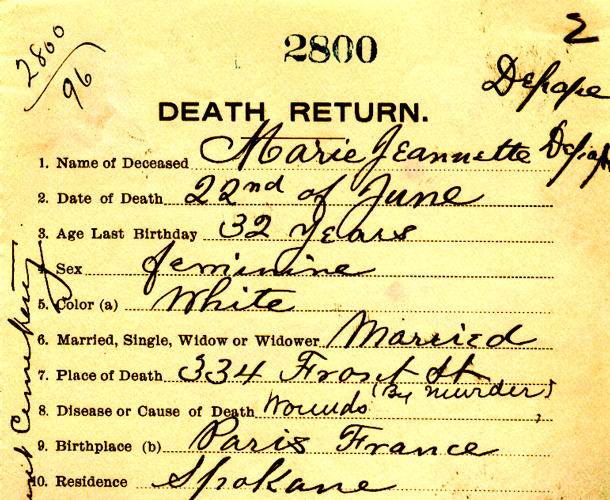 2800
96
2800
2
Depape
DEATH RETURN.
1. Name of Deceased Marie Jeannette
2. Date of Death 22nd of June
3. Age Last Birthday 32 Years
4. Sex feminine
5. Color (a) White
6. Married, Single, Widow or Widower Married
7. Place of Death 334 Front St
8. Disease or Cause of Death Wounds (By murder)
9. Birthplace (b) Paris France
10. Residence Spokane